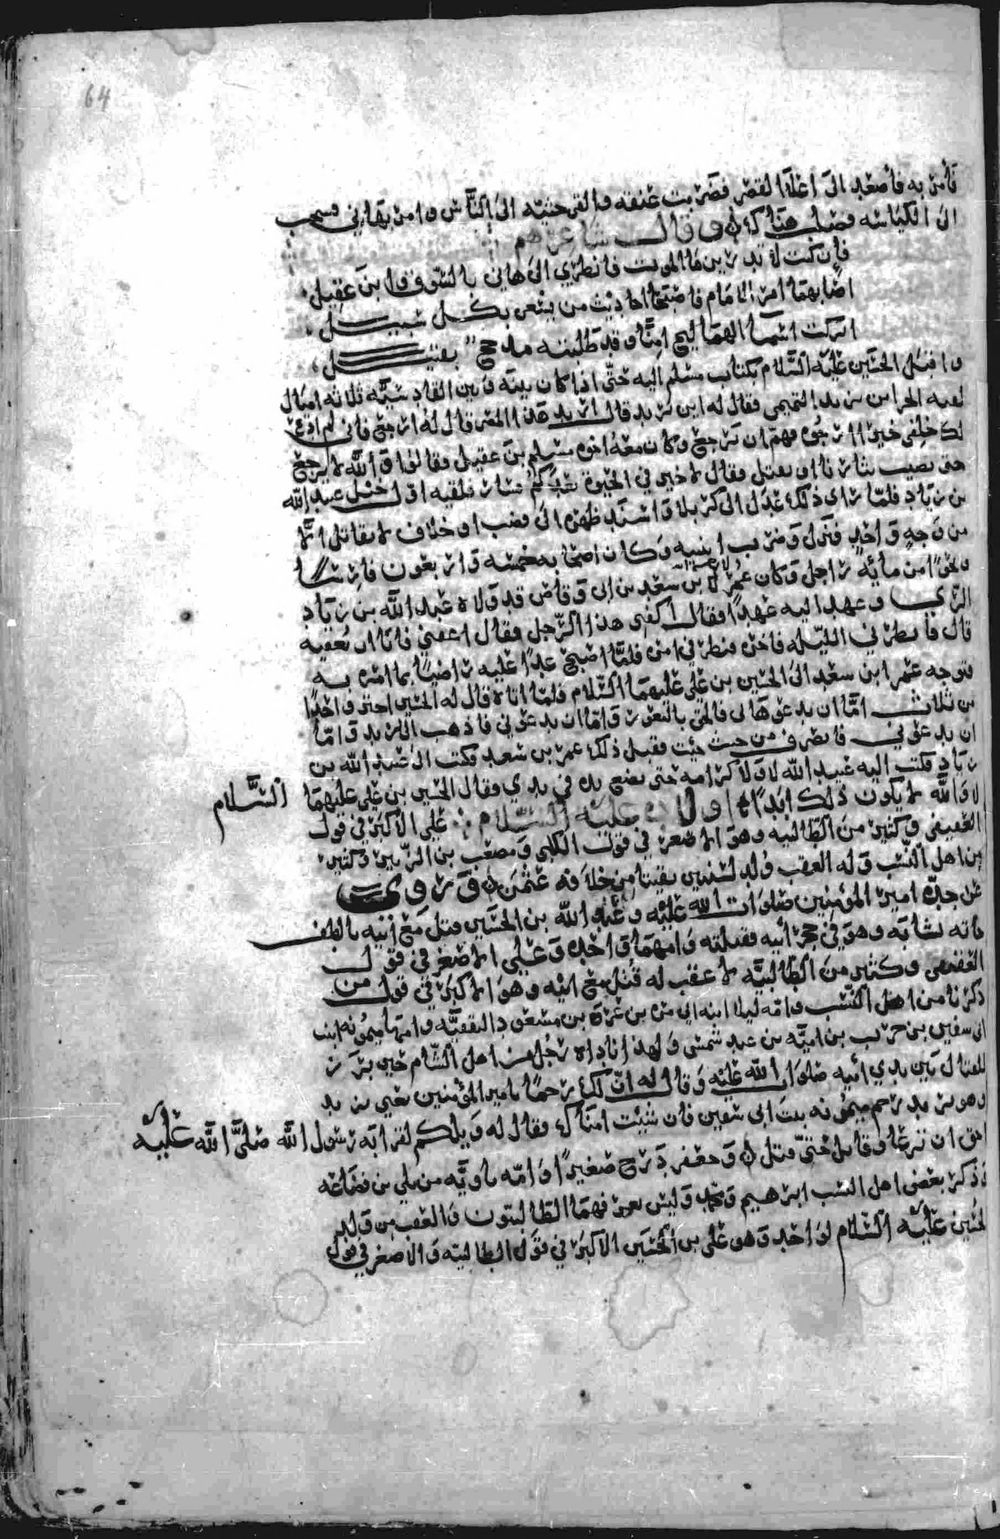 64
فأمر به فأصعد الى أعلا القصر فضربت عنقه والقى جثته الى الناس وامر بهانى فسحب
الى الكناسه فصلب هناك وقال شاعرهم
فان كنت لا تدرين ما الموت فانظري الى هانى بالسوق وابن عقيل
اصابهما امر الامام فاصبحا احاديث من يسعى بكل سبيل
اتركب اسما الهماليج امنا وقد طلبته مذحج بقتيل
واقبل الحسين عليه السلام بكتاب مسلم اليه حتى اذا كان بينه وبين القادسيه ثلاثه اميال
لقيه الحر ابن يزيد التميمي فقال له اين تريد قال اريد هذا المصر قال له ارجع فانى لم ادع
لك خلفي خيرا ارجوه فهم ان يرجع وكان معه اخوه مسلم بن عقيل فقالوا والله لا نرجع
حتى نصيب بثارنا او نقتل فقال لا خير في الحيوة بعدكم فسار فلقيه اول خيل عبيد الله
بن زياد فلما راى ذلك عدل الى كربلا واسند ظهره الى قصب او خلاف لا يقاتل الا
من وجه واحد فنزل وضرب ابنيه وكان اصحابه خمسه واربعون فارسا
ونحوا من مايه راجل وكان عمر بن سعد بن ابى وقاص قد ولاه عبيد الله بن زياد
الري وعهد اليه عهدا فقال اكفني هذا الرجل فقال اعفني فابا ان يعفيه
قال فانظرني الليله فاخره فنظر في امره فلما اصبح غدا عليه راضيا بما امره به
فتوجه عمر ابن سعد الى الحسين بن علي عليهما السلام فلما اتاه قال له الحسين اختر واحدا
من ثلاث اما ان تدعونى فالحق بالثغور واما ان تدعونى فاذهب الى يزيد واما
ان تدعوني فانصرف من حيث جيت فقبل ذلك عمر بن سعد فكتب الى عبيد الله بن
زياد فكتب اليه عبيد الله لا ولا كرامه حتى يضع يده في يدي وقال الحسين بن علي عليهما السلام
لا والله لا يكون ذلك ابدا اولاده عليه السلام علي الاكبر في قول
العقيقي وكثير من الطالبيه وهو الاصغر في قول الكلبى ومصعب بن الزبير وكثير
من اهل النسب وله العقب ولد لسنتين بقيتا من خلافه عثمن وروى
عن جده امير المؤمنين صلوات الله عليه وعبد الله بن الحسين قتل مع ابيه بالطف
جاته نشابه وهو في حجر أبيه فقتلته وامهما واحده وعلي الاصغر في قول
العقيقي وكثير من الطالبيه لا عقب له قتل مع ابيه وهو الاكبر في قول من
ذكرنا من اهل النسب وامه ليلا ابنه ابي مره بن عروه بن مسعود الثقفيه وامها ميمونه ابنه
ابى سفين بن حرب بن اميه بن عبد شمس ولهذا ناداه رجل من اهل الشام حين برز
للقتال بين يدي أبيه صلوات الله عليه وقال له ان لك رحما بامير المؤمنين يعني يزيد
وهو يريد رحم ميمونه بنت ابى سفين فان شيت امناك فقال له ويلكم لقرابه رسول الله صلى الله عليه
احق ان ترعا وقاتل حتى قتل وجعفر درج صغيرا وامه بلويه من بلي بن قضاعه
وذكر بعض اهل النسب ابرهيم ومحمد وليس يعرفهما الطالبيون والعقب من ولد
لحسين عليه السلام لواحد وهو علي بن الحسين الاكبر في قول الطالبيه والاصغر في قول